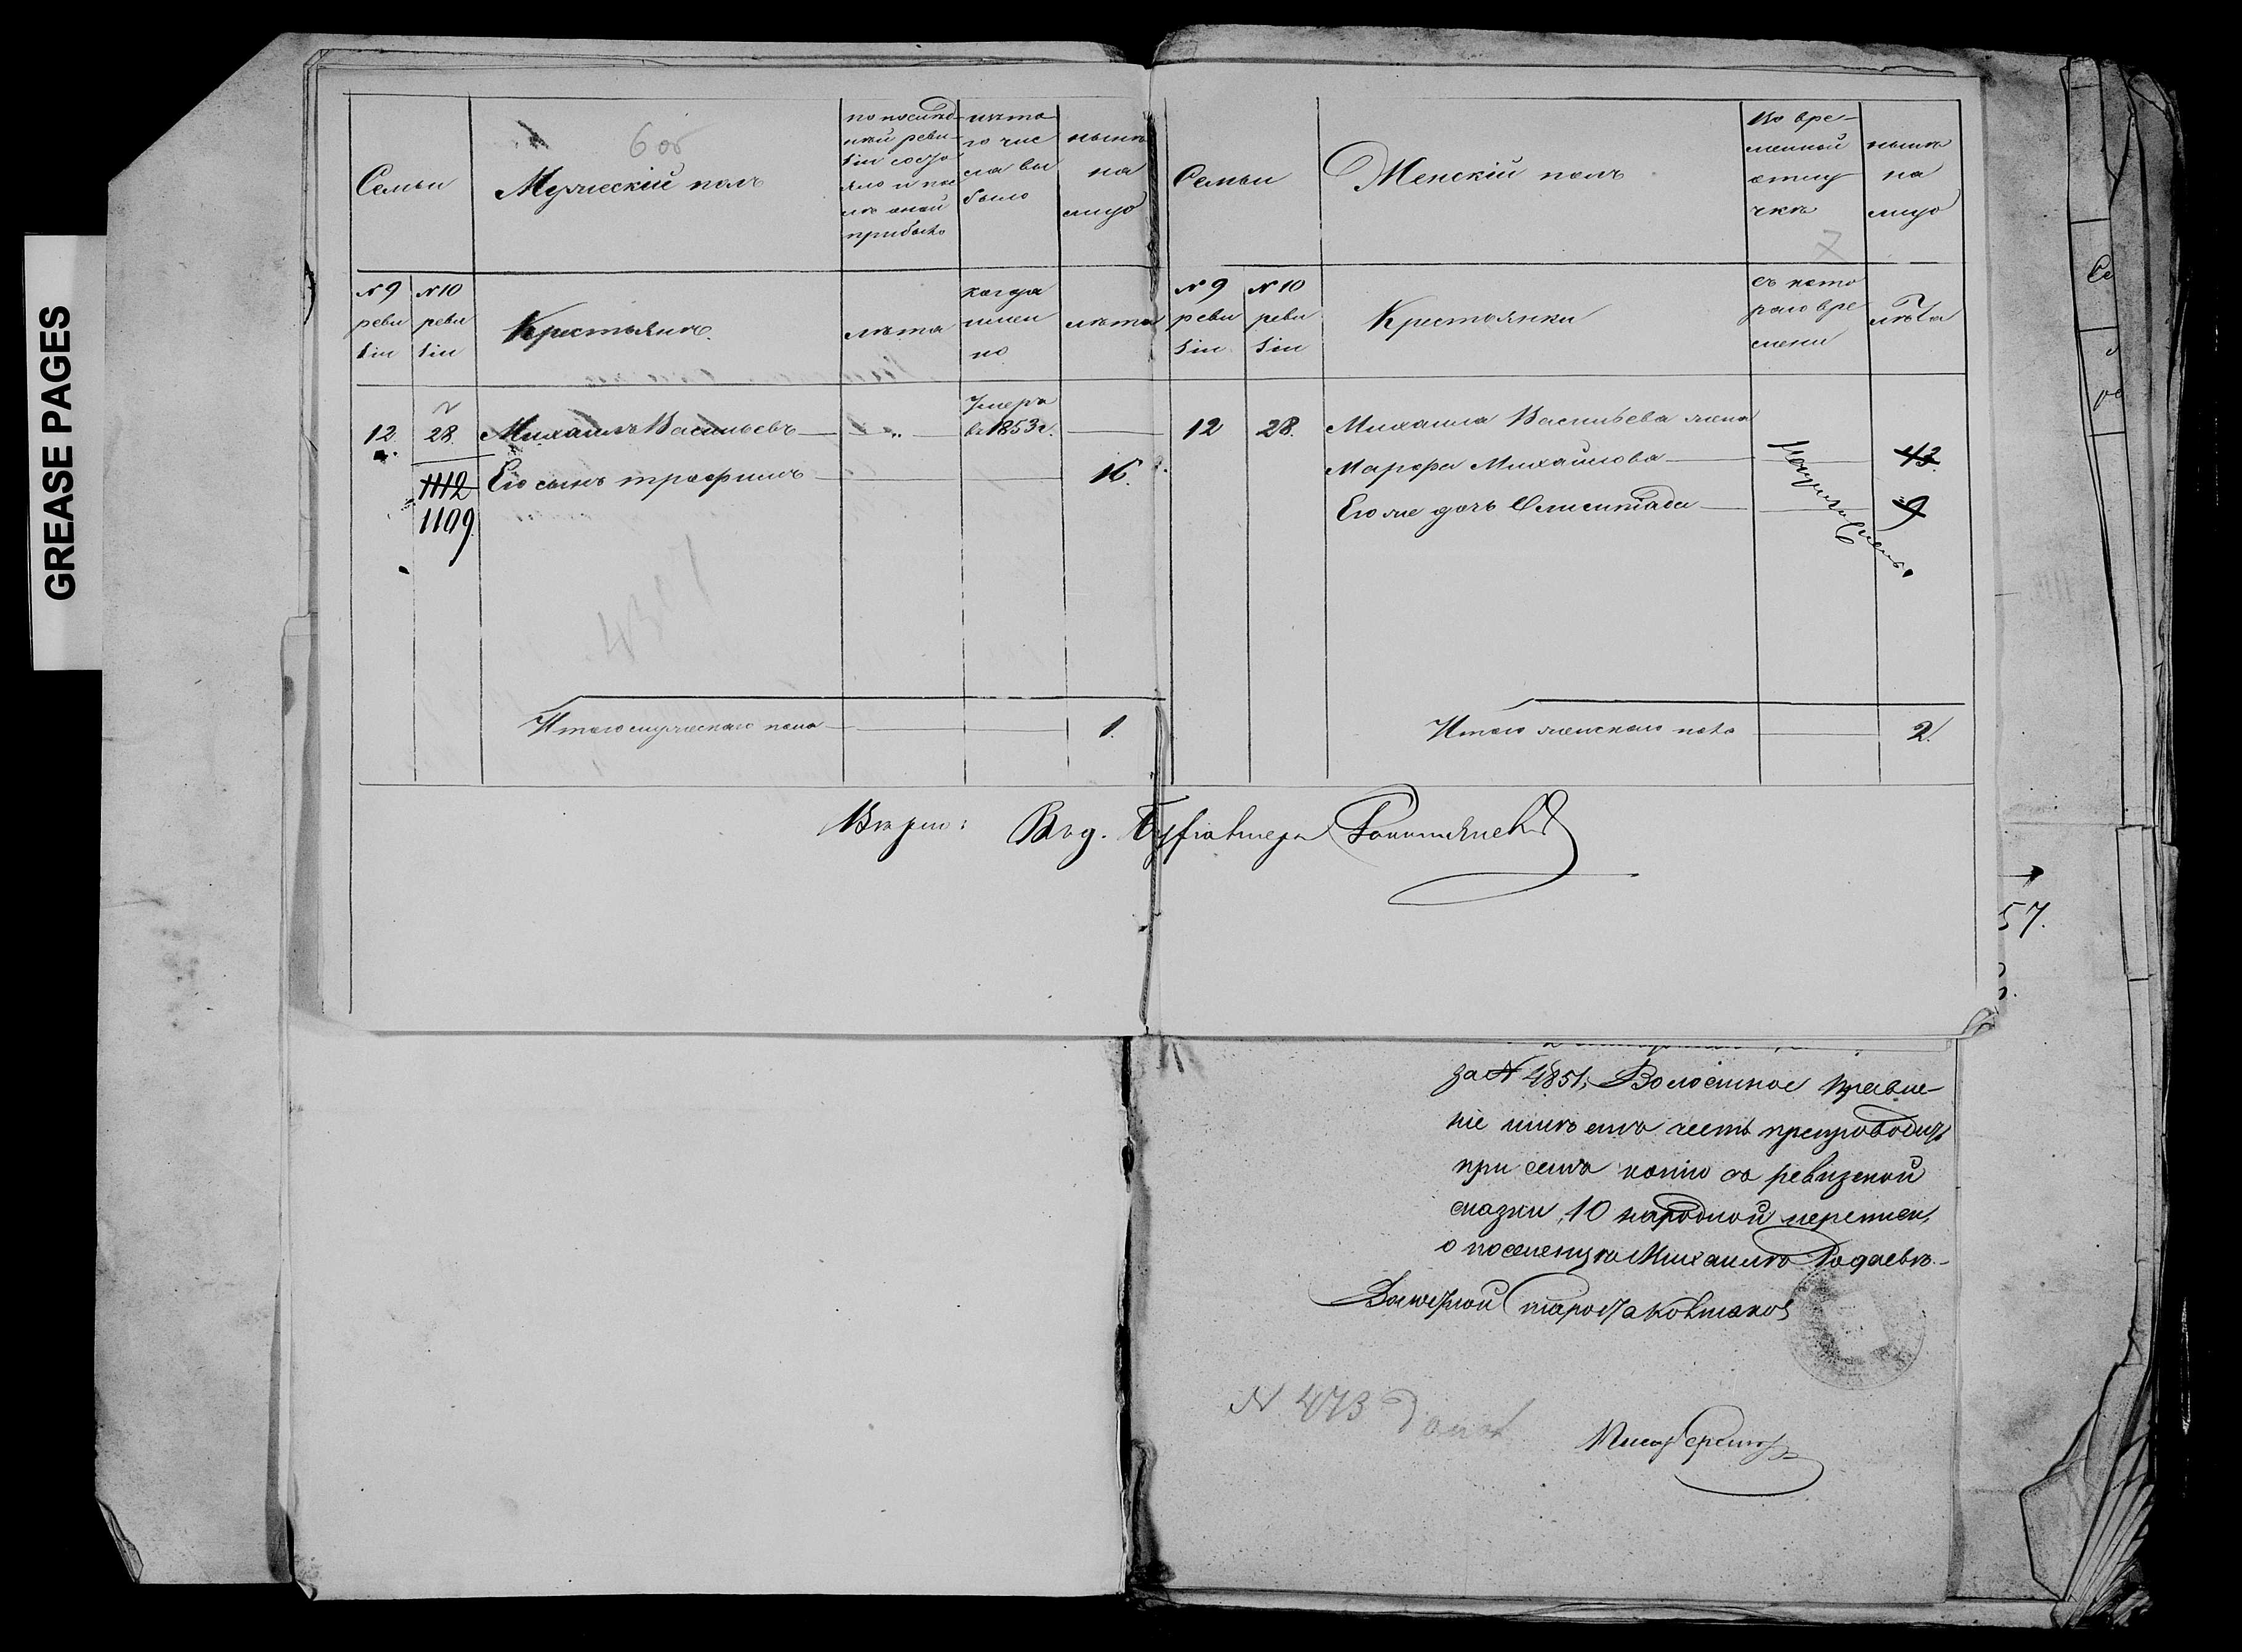 GREASE PAGES
6 об
Семьи
Мужескій полъ
по послѣд-
ней реви-
зіи состо
яло и пос
лѣ оной
прибыло
изъ то
го чис
ла вы
было
нынѣ
на
лицо
Семьи
Женскій полъ
Во вре-
менной
отлу
чкѣ
нынѣ
на
лицо
7
№ 9
реви
зіи
№ 10
реви
зіи
Крестьянъ
лѣта
когда
имен
но
лѣта
№ 9
реви
зіи
№ 10
реви
зіи
Крестьянки
съ кото
раго вре
мени
лѣта
12. 28. Михаилъ Васильевъ — „ — Умеръ въ 1853 г. —
1112 Его сынъ Трофимъ — 16.
1109.
12 28. Михаила Васильева жена
Марфа Михайлова — 43.
Его же дочь — 9
Итого мужескаго пола — 1.
Итого женскаго пола — 2.
Вѣрно:
57.
за № 4851, Волостное Правле-
ніе имѣетъ честь препроводить
при семъ копію съ ревизской
сказки, 10 народной переписи,
о поселенцѣ Михаилѣ
Волостной Старо‌ста
№ 473